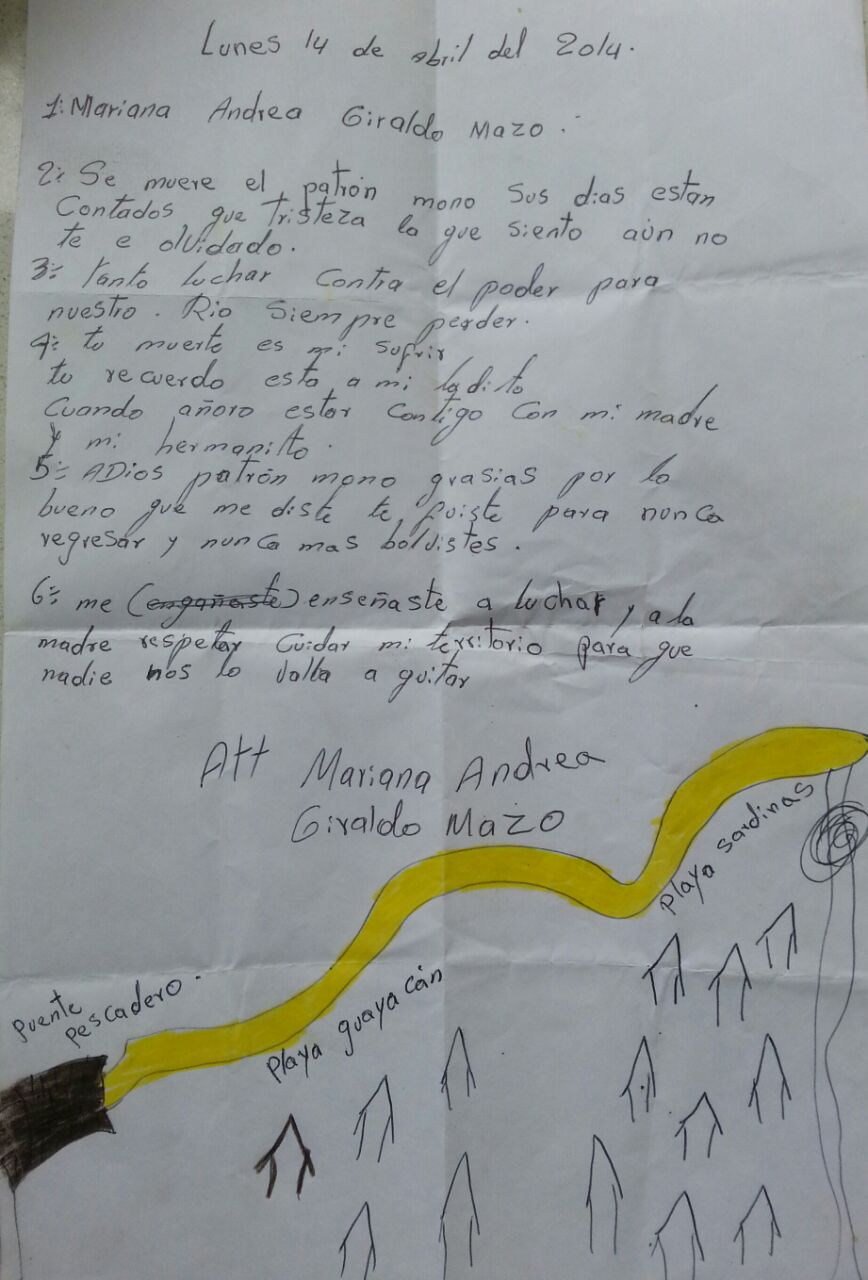 Lunes 14 de abril del 2014.
1: Mariana Andrea Giraldo Mazo.
2: Se muere el patrón mono sus dias estan
Contados que tristeza la que siento aún no
te e olvidado.
3: tanto luchar contra el poder para
nuestro. Rio Siempre perder.
4: tu muerte es mi sufrir
tu recuerdo esta a mi ladito
Cuando añoro estar contigo con mi madre
y mi hermanito.
5: ADios patrón mono grasias por lo
bueno que me diste te fuiste para nunca
regresar y nunca mas bolvistes.
6: me (engañaste) enseñaste a luchar y a la
madre respetar cuidar mi territorio para que
nadie nos lo valla a quitar
Att Mariana Andrea
Giraldo Mazo
Playa sardinas
Puente
pescadero.
Playa guayacán